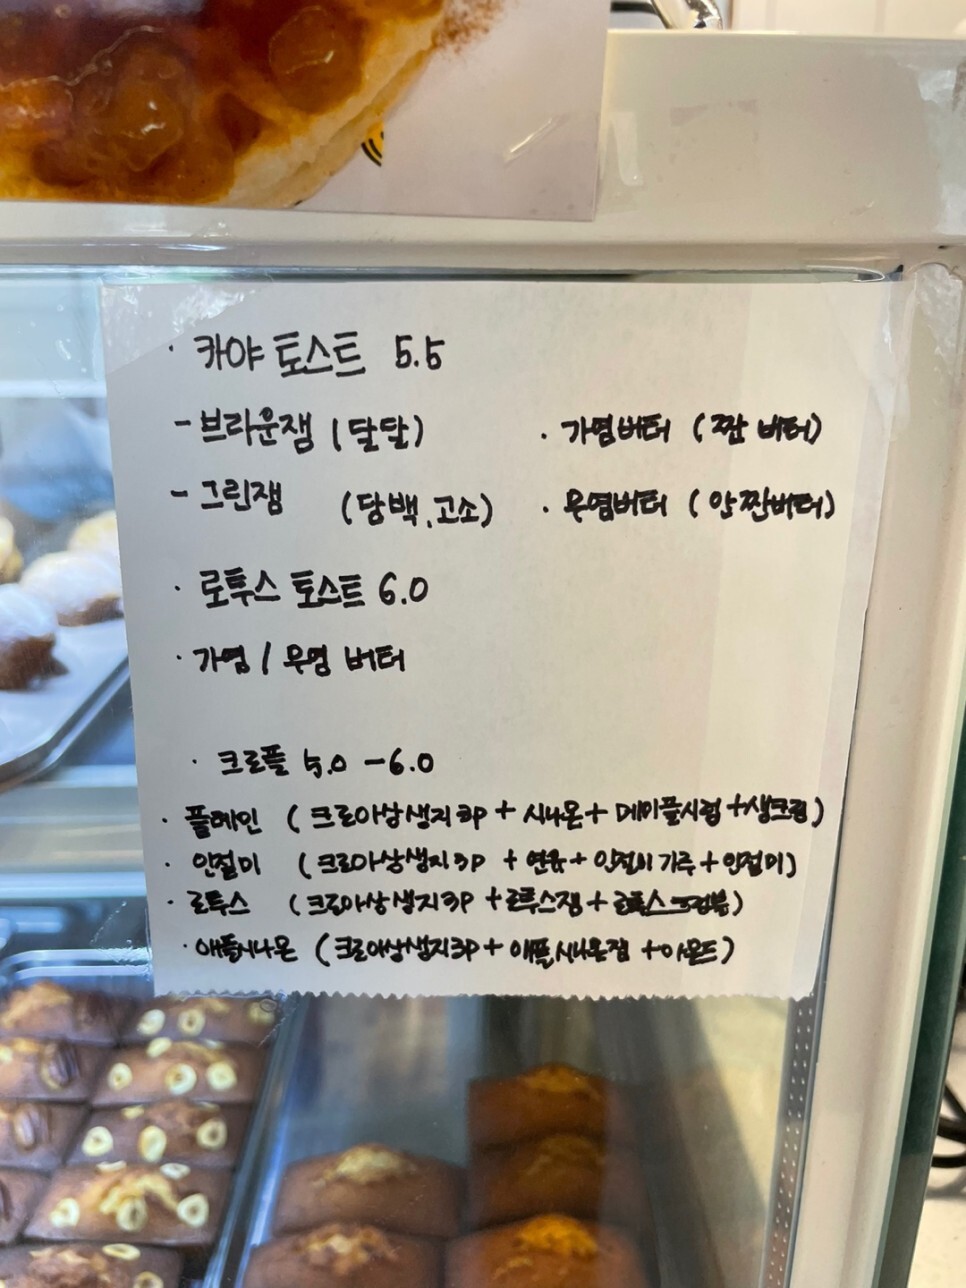 · 카야 토스트 5.5
- 브라운잼 (달달) · 가염버터 (짠 버터)
- 그린잼 (담백, 고소) · 무염버터 (안짠버터)
· 로투스 토스트 6.0
· 가염 / 무염 버터
· 크로플 5.0 - 6.0
· 플레인 (크로아상생지 3P + 시나몬 + 메이플시럽 + 생크림)
· 인절미 (크로아상생지 3P + 연유 + 인절미 가루 + 인절미)
· 로투스 (크로아상생지 3P + 로투스잼 + 로투스 크럼블)
· 애플시나몬 (크로아상생지 3P + 애플시나몬잼 + 아몬드)